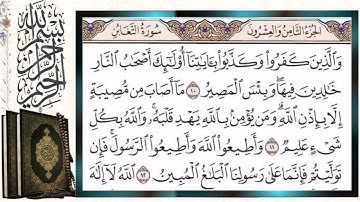 بسم الله الرحمن الرحيم
الجزء الثامن والعشرون
سورة التغابن
والذين كفروا وكذبوا بـٔايـٰتنا أولـٰئك أصحـٰب النار
خـٰلدين فيها وبئس المصير ١٠ ما أصاب من مصيبة
إلا بإذن الله ومن يؤمن بالله يهد قلبه والله بكل
شيء عليم ١١ وأطيعوا الله وأطيعوا الرسول فإن
توليتم فإنما على رسولنا البلـٰغ المبين ١٢ الله لا إلـٰه